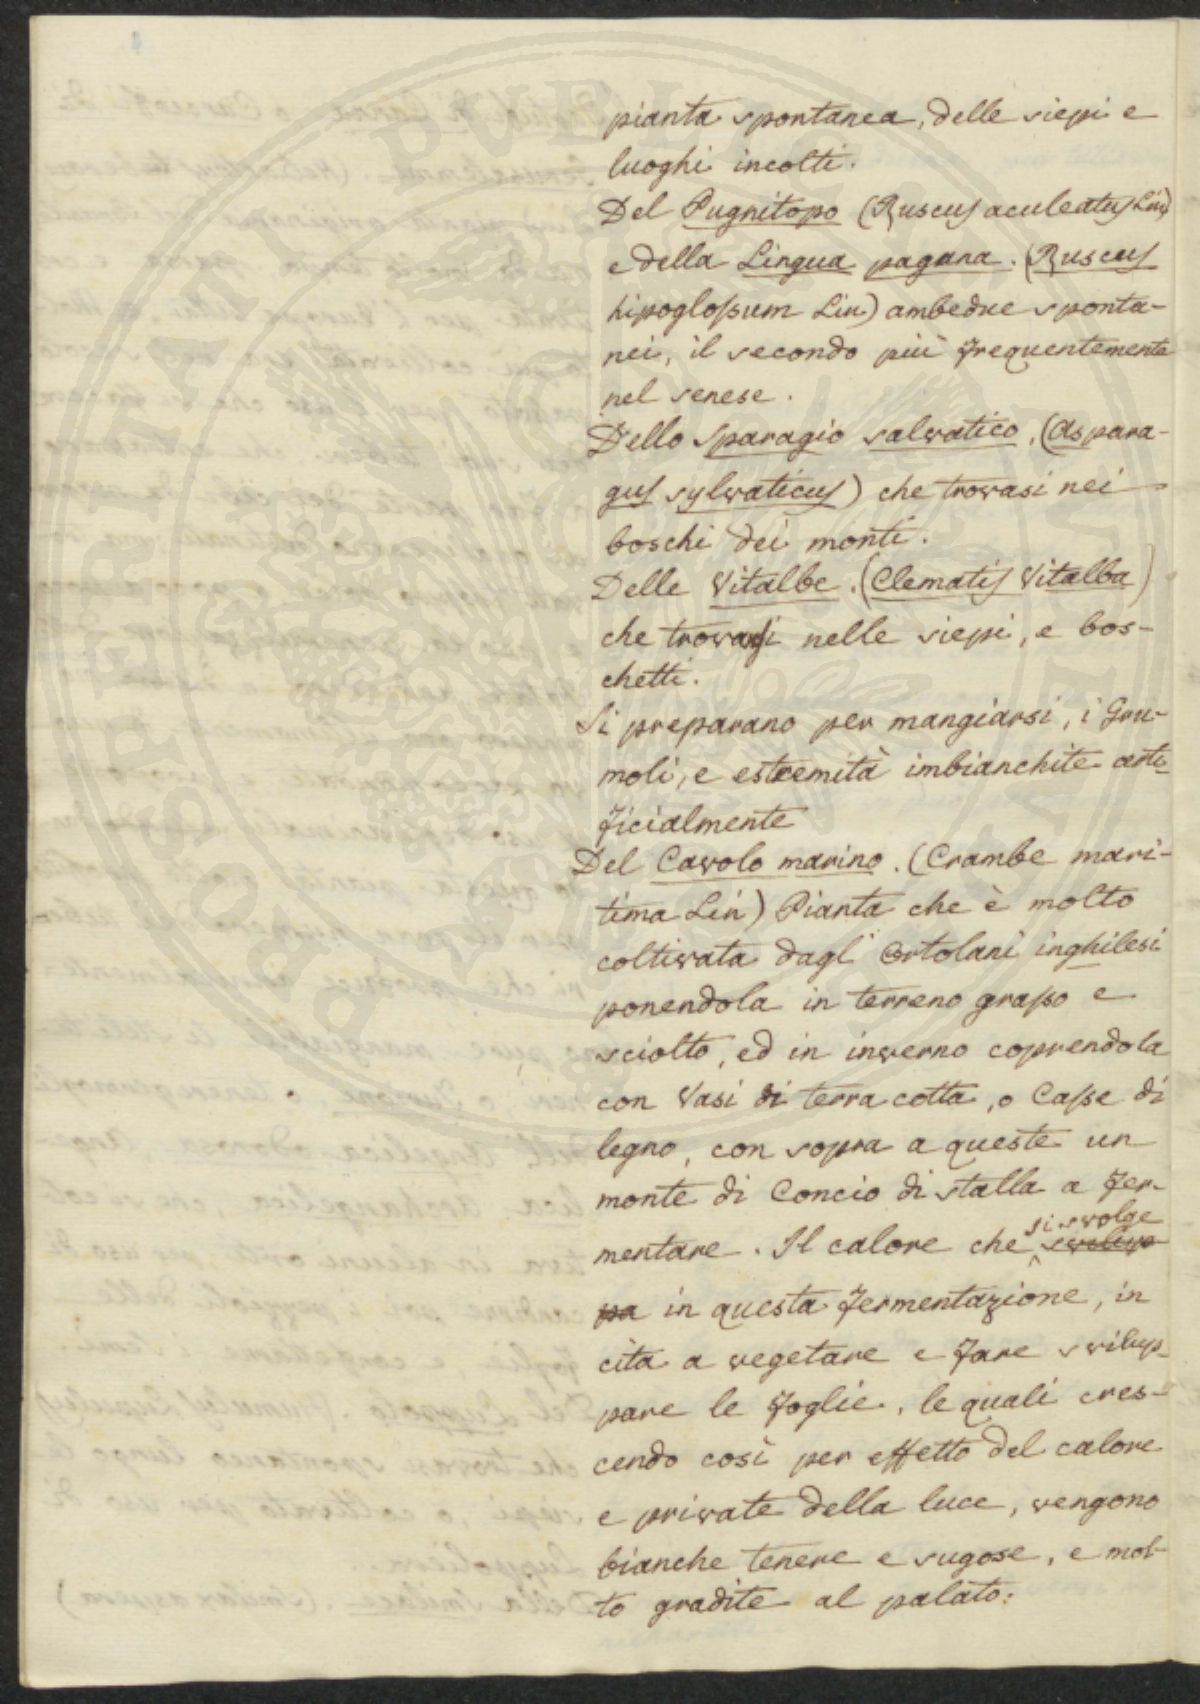 pianta spontanea, delle siepi e
luoghi incolti.
Del Pugnitopo (Ruscus aculeatus Lin)
e della Lingua pagana. (Ruscus
hipoglossum Lin) ambedue sponta-
nei, il secondo più frequentemente
nel senese.
Dello Sparagio salvatico, (Aspara-
gus sylvaticus) che trovasi nei
boschi dei monti.
Delle Vitalbe. (Clematis Vitalba)
che trovasi nelle siepi, e bos-
chetti.
Si preparano per mangiarsi, i Gru-
moli, e estremità imbianchite arti-
ficialmente
Del Cavolo marino. (Crambe mari-
tima Lin) Pianta che è molto
coltivata dagl' Ortolani inghilesi
ponendola in terreno grasso e
sciolto, ed in inverno coprendola
con Vasi di terra cotta, o Casse di
legno, con sopra a queste un
monte di Concio di stalla a fer-
si svolge
mentare. Il calore che svilup
pa in questa fermentazione, in
cita a vegetare e fare svilup-
pare le foglie, le quali cres-
cendo così per effetto del calore
e private della luce, vengono
bianche tenere e sugose, e mol-
to gradite al palato.